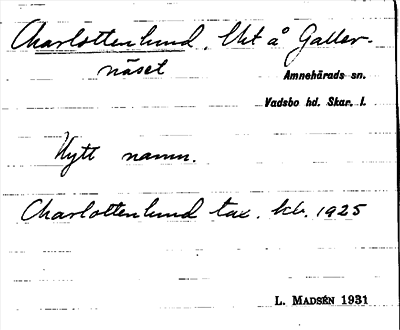 Charlottenlund, Uht å Galler-
näset
Amnehärads sn.
Vadsbo hd. Skar. l.
Nytt namn.
Charlottenlund tax. kb. 1925
L. MADSÉN 1931